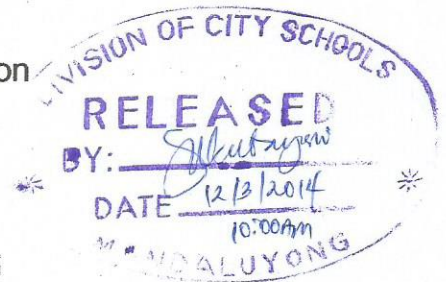 on
DIVISION OF CITY SCHOOLS
RELEASED
BY:
DATE 12/3/2014
10:00AM
MANDALUYONG